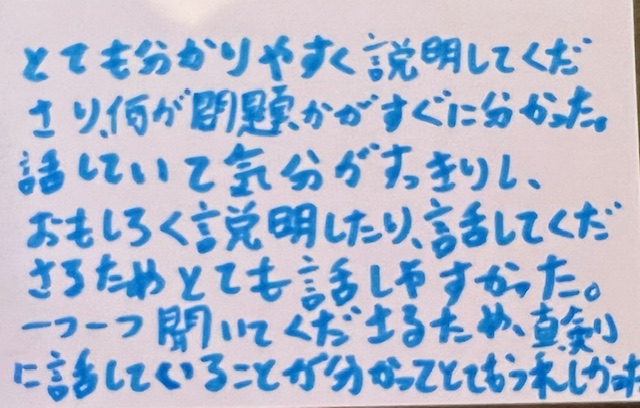 とても分かりやすく説明してくだ
さり、何が問題かがすぐに分かった。
話していて気分がすっきりし、
おもしろく説明したり、話してくだ
さるためとても話しやすかった。
一つ一つ聞いてくださるため、真剣
に話していることが分かってとてもうれしかった